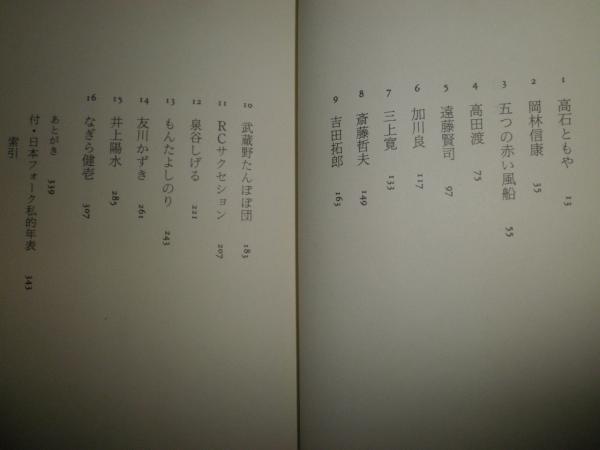 1 高石ともや 13
2 岡林信康 35
3 五つの赤い風船 55
4 高田渡 75
5 遠藤賢司 97
6 加川良 117
7 三上寛 133
8 斎藤哲夫 149
9 吉田拓郎 163
10 武蔵野たんぽぽ団 183
11 RCサクセション 207
12 泉谷しげる 221
13 もんたよしのり 243
14 友川かずき 261
15 井上陽水 285
16 なぎら健壱 307
あとがき 339
付・日本フォーク私的年表 343
索引